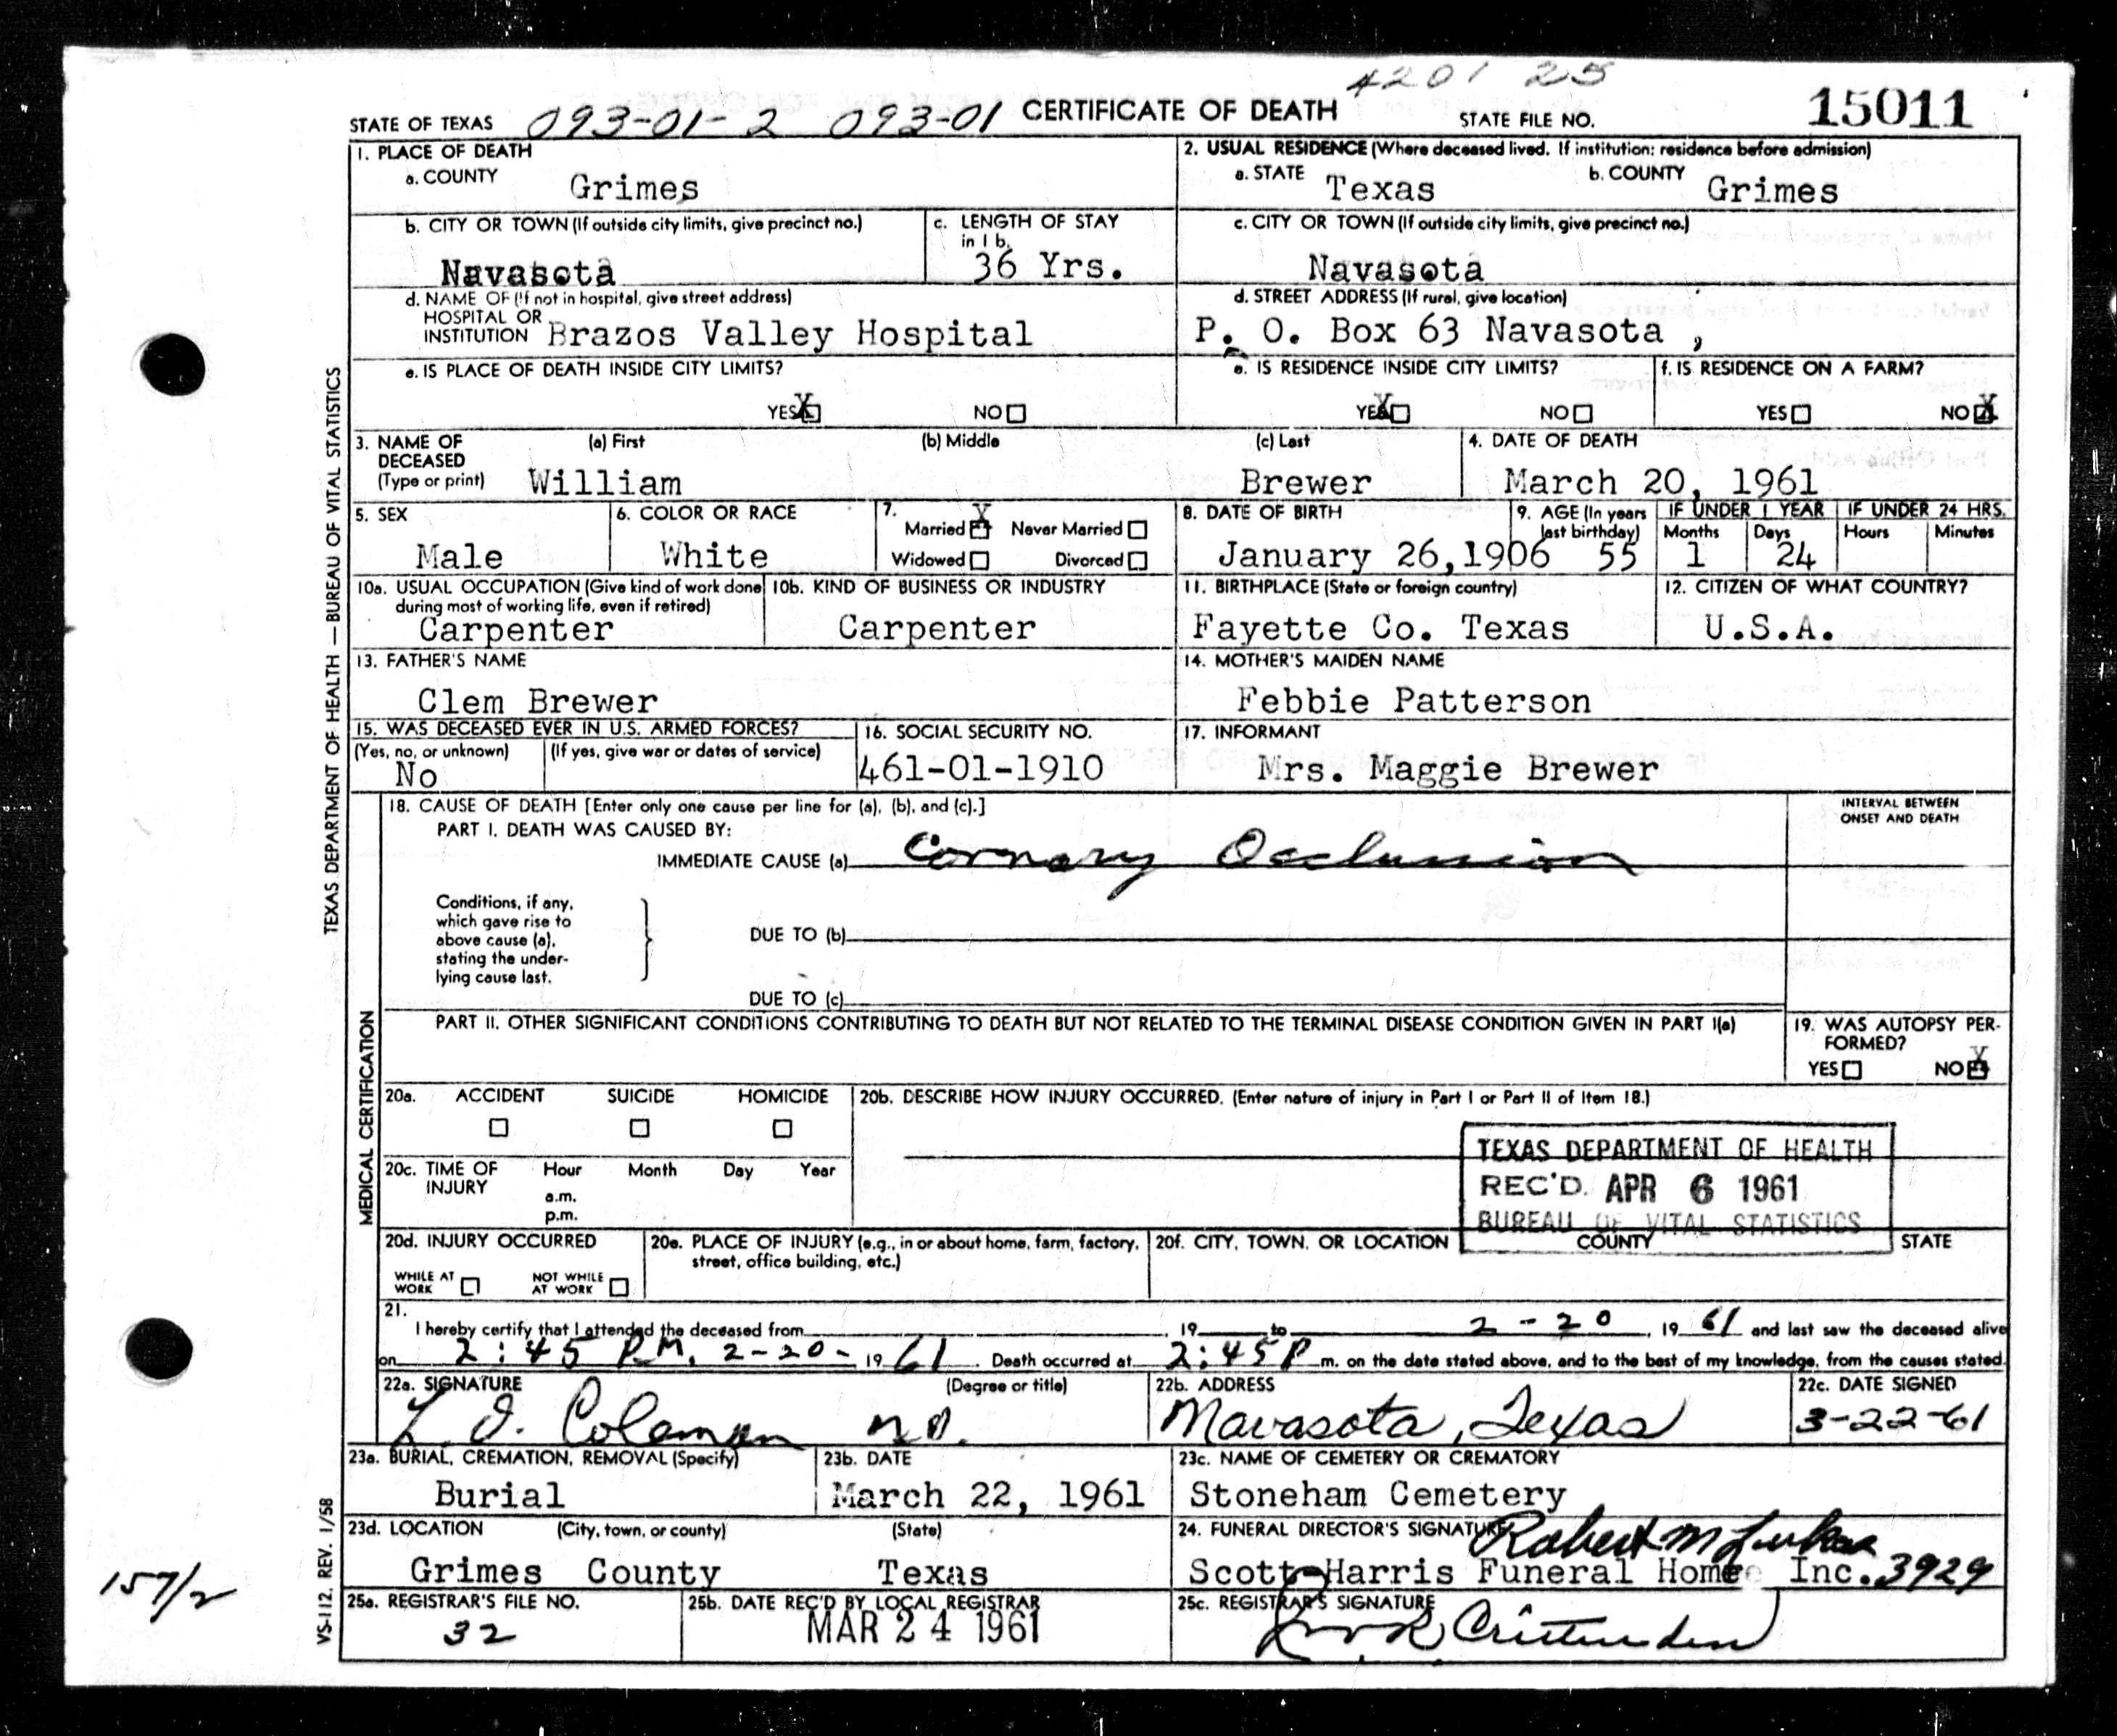 4201 25
STATE OF TEXAS 093-01-2 093-01 CERTIFICATE OF DEATH STATE FILE NO. 15011
1. PLACE OF DEATH
a. COUNTY Grimes
2. USUAL RESIDENCE (Where deceased lived. If institution: residence before admission)
a. STATE Texas b. COUNTY Grimes
b. CITY OR TOWN (If outside city limits, give precinct no.)
Navasota
c. LENGTH OF STAY
in 1 b.
36 Yrs.
c. CITY OR TOWN (If outside city limits, give precinct no.)
Navasota
d. NAME OF (If not in hospital, give street address)
HOSPITAL OR
INSTITUTION Brazos Valley Hospital
d. STREET ADDRESS (If rural, give location)
P. O. Box 63 Navasota ,
e. IS PLACE OF DEATH INSIDE CITY LIMITS?
YES X NO
e. IS RESIDENCE INSIDE CITY LIMITS?
YES X NO
f. IS RESIDENCE ON A FARM?
YES NO X
3. NAME OF
DECEASED
(Type or print)
(a) First (b) Middle (c) Last
William Brewer
4. DATE OF DEATH
March 20, 1961
5. SEX
Male
6. COLOR OR RACE
White
7.
Married X Never Married
Widowed Divorced
8. DATE OF BIRTH
January 26,1906
9. AGE (In years
last birthday)
55
IF UNDER 1 YEAR
Months Days
1 24
IF UNDER 24 HRS.
Hours Minutes
10a. USUAL OCCUPATION (Give kind of work done
during most of working life, even if retired)
Carpenter
10b. KIND OF BUSINESS OR INDUSTRY
Carpenter
11. BIRTHPLACE (State or foreign country)
Fayette Co. Texas
12. CITIZEN OF WHAT COUNTRY?
U.S.A.
13. FATHER'S NAME
Clem Brewer
14. MOTHER'S MAIDEN NAME
Febbie Patterson
15. WAS DECEASED EVER IN U.S. ARMED FORCES?
(Yes, no, or unknown) (If yes, give war or dates of service)
No
16. SOCIAL SECURITY NO.
461-01-1910
17. INFORMANT
Mrs. Maggie Brewer
18. CAUSE OF DEATH [Enter only one cause per line for (a), (b), and (c).]
PART I. DEATH WAS CAUSED BY:
IMMEDIATE CAUSE (a) Cornary Occlusion
INTERVAL BETWEEN
ONSET AND DEATH
Conditions, if any,
which gave rise to
above cause (a),
stating the under-
lying cause last.
DUE TO (b)
DUE TO (c)
PART II. OTHER SIGNIFICANT CONDITIONS CONTRIBUTING TO DEATH BUT NOT RELATED TO THE TERMINAL DISEASE CONDITION GIVEN IN PART I(a)
19. WAS AUTOPSY PER-
FORMED?
YES NO X
20a. ACCIDENT SUICIDE HOMICIDE
20b. DESCRIBE HOW INJURY OCCURRED. (Enter nature of injury in Part I or Part II of Item 18.)
20c. TIME OF
INJURY
Hour Month Day Year
a.m.
p.m.
TEXAS DEPARTMENT OF HEALTH
REC'D. APR 6 1961
BUREAU OF VITAL STATISTICS
20d. INJURY OCCURRED
WHILE AT
WORK
NOT WHILE
AT WORK
20e. PLACE OF INJURY (e.g., in or about home, farm, factory,
street, office building, etc.)
20f. CITY, TOWN, OR LOCATION COUNTY STATE
21.
I hereby certify that I attended the deceased from , 19 to 2-20 , 19 61 and last saw the deceased alive
on 2:45 P.M. 2-20- 19 61. Death occurred at 2:45 P m. on the date stated above, and to the best of my knowledge, from the causes stated.
22a. SIGNATURE (Degree or title)
Coleman M.D.
22b. ADDRESS
Navasota, Texas
22c. DATE SIGNED
3-22-61
23a. BURIAL, CREMATION, REMOVAL (Specify)
Burial
23b. DATE
March 22, 1961
23c. NAME OF CEMETERY OR CREMATORY
Stoneham Cemetery
23d. LOCATION (City, town, or county) (State)
Grimes County Texas
24. FUNERAL DIRECTOR'S SIGNATURE Robert M
Scott-Harris Funeral Home Inc. 3929
25a. REGISTRAR'S FILE NO.
32
25b. DATE REC'D BY LOCAL REGISTRAR
MAR 24 1961
25c. REGISTRAR'S SIGNATURE
TEXAS DEPARTMENT OF HEALTH — BUREAU OF VITAL STATISTICS
MEDICAL CERTIFICATION
VS-112. REV. 1/58
157/2